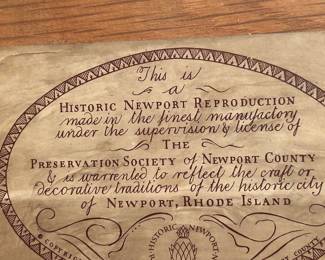 This is
a
HISTORIC NEWPORT REPRODUCTION
made in the finest manufactory
under the supervision & license of
THE
PRESERVATION SOCIETY of NEWPORT COUNTY
& is warrented to reflect the craft or
decorative traditions of the historic city
of NEWPORT, RHODE ISLAND
HISTORIC NEWPORT
© COPYRIGHT
COUNTY